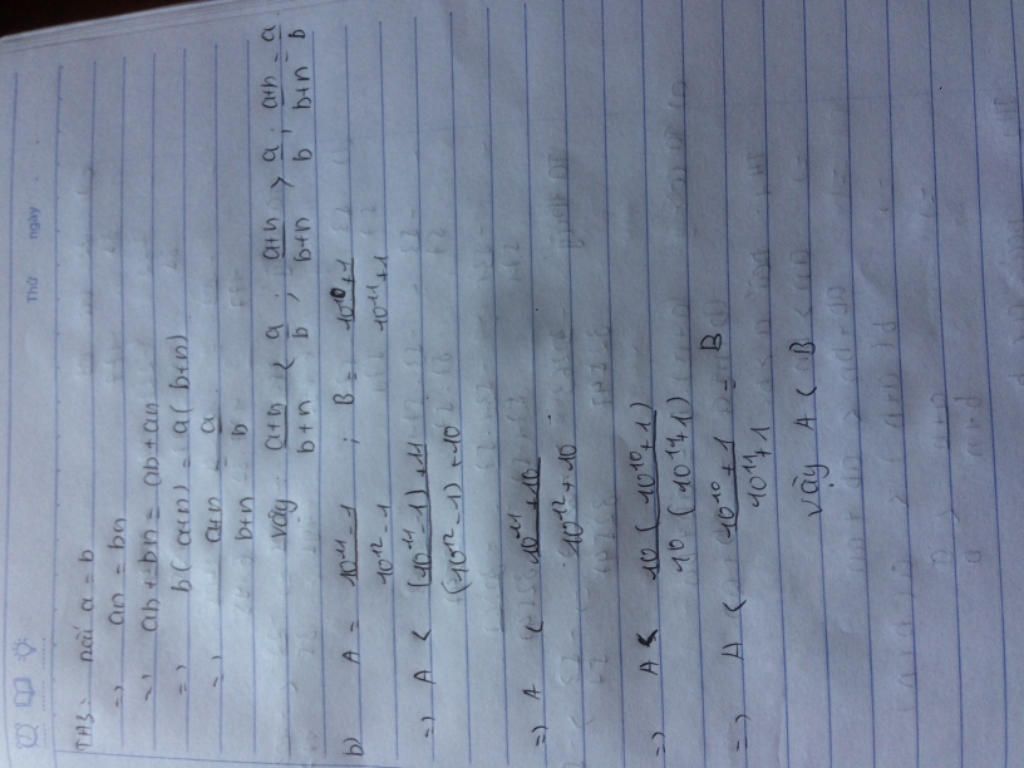 Thứ ngày
TH3: nếu a = b
=) an = bn
=) ab + bn = ab + an
=) b(a+n) = a(b+n)
=) a+n/b+n = a/b
vậy a+n/b+n < a/b ; a+n/b+n > a/b ; a+n/b+n = a/b
b) A = 10¹¹-1/10¹²-1 ; B = 10¹⁰+1/10¹¹+1
=) A < (10¹¹-1)+11/(10¹²-1)+10
=) A < 10¹¹+10/10¹²+10
=) A < 10(10¹⁰+1)/10(10¹¹+1)
=) A < 10¹⁰+1/10¹¹+1 = B
vậy A < B